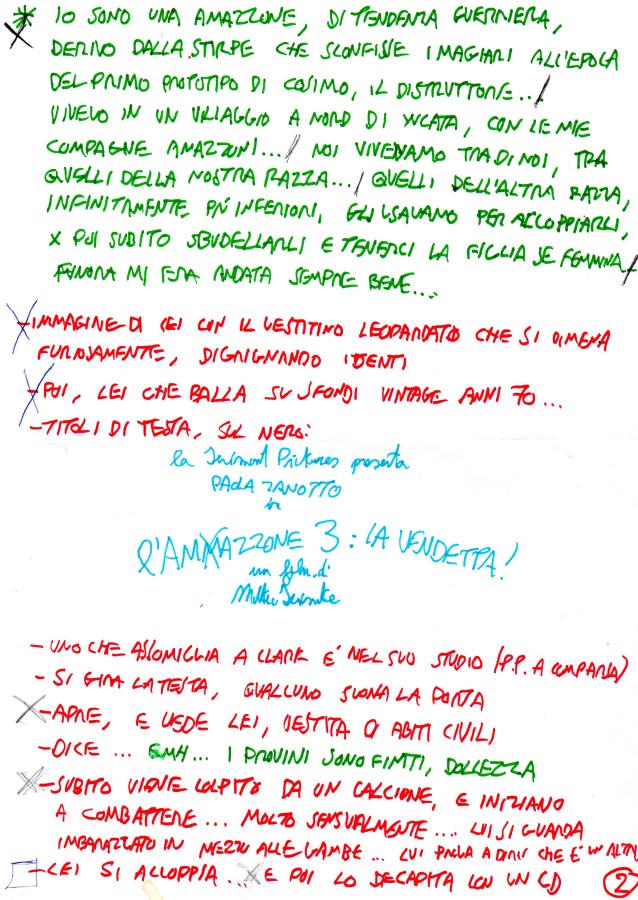 IO SONO UNA AMAZZONE, DI TENDENZA GUERRIERA,
DERIVO DALLA STIRPE CHE SCONFISSE I MAGIARI ALL'EPOCA
DEL PRIMO PROTOTIPO DI COSIMO, IL DISTRUTTORE...
VIVEVO IN UN VILLAGGIO A NORD DI YUCATA, CON LE MIE
COMPAGNE AMAZZONI... NOI VIVEVAMO TRA DI NOI, TRA
QUELLI DELLA NOSTRA RAZZA... QUELLI DELL'ALTRA RAZZA,
INFINITAMENTE PIÙ INFERIORI, GLI USAVAMO PER ACCOPPIARLI,
X POI SUBITO SBUDELLARLI E TENERCI LA FIGLIA SE FEMMINA
FINORA MI ERA ANDATA SEMPRE BENE...
- IMMAGINE DI LEI CON IL VESTITINO LEOPARDATO CHE SI DIMENA
FURIOSAMENTE, DIGRIGNANDO I DENTI
- POI, LEI CHE BALLA SU SFONDI VINTAGE ANNI 70...
- TITOLI DI TESTA, SUL NERO:
la Pictures presenta
PAOLA ZANOTTO
in
L'AMAZZONE 3: LA VENDETTA!
un film di
- UNO CHE ASSOMIGLIA A CLARK E' NEL SUO STUDIO (P.P. A COMPARSA)
- SI GIRA LA TESTA, QUALCUNO SUONA LA PORTA
- APRE, E VEDE LEI, VESTITA DI ABITI CIVILI
- DICE ... EMH... I PROVINI SONO FINITI, DOLLEZZA
- SUBITO VIENE COLPITO DA UN CALCIONE, E INIZIANO
A COMBATTERE... MOLTO SENSUALMENTE.... LUI SI GUARDA
IMBARAZZATO IN MEZZO ALLE GAMBE... LUI PROVA A DIRE CHE E' UN ALTRO
- LEI SI ACCOPPIA... E POI LO DECAPITA CON UN CD
2